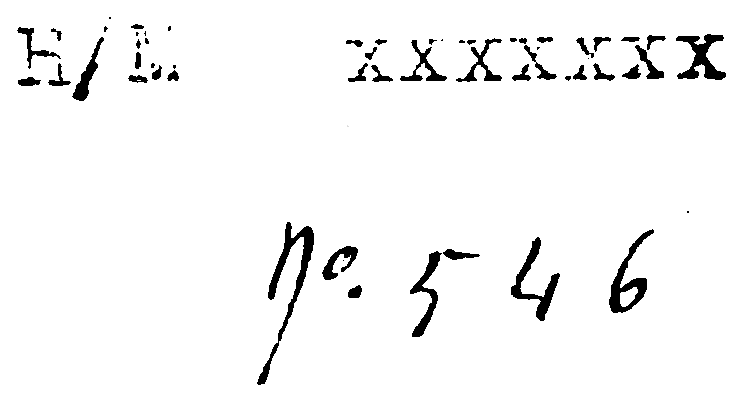 H/M XXXXXXX
No. 546